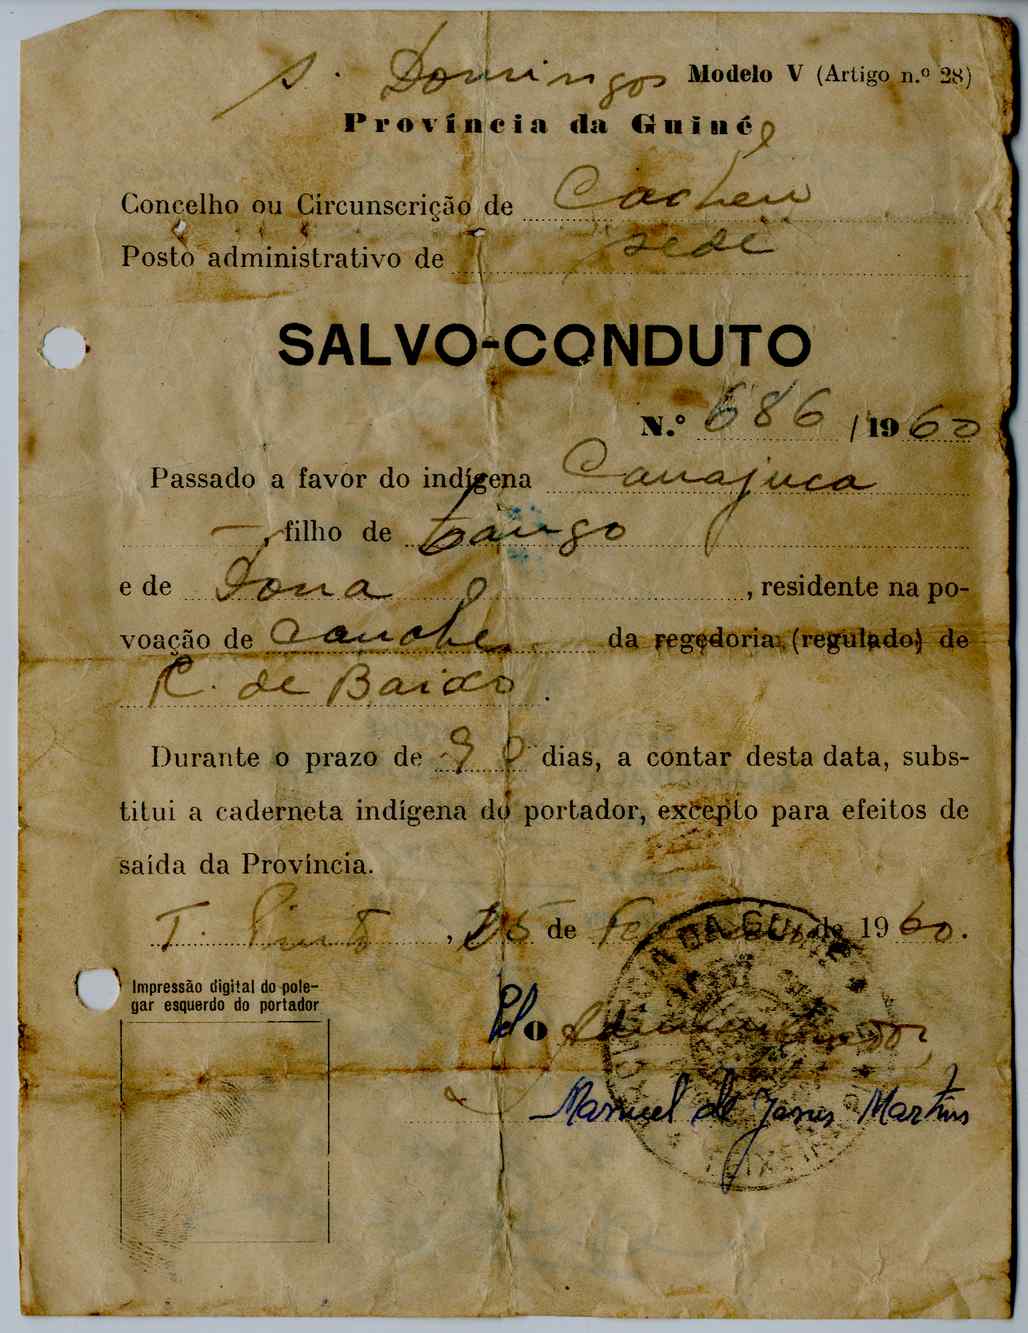 S. Domingos Modelo V (Artigo n.º 28)
Província da Guiné
Concelho ou Circunscrição de Cacheu
Posto administrativo de sede
SALVO-CONDUTO
N.º 686 / 1960
Passado a favor do indígena Canajuca
—, filho de Cango
e de Dona, residente na po-
voação de da regedoria (regulado) de
R. de Baixo.
Durante o prazo de 90 dias, a contar desta data, subs-
titui a caderneta indígena do portador, excepto para efeitos de
saída da Província.
T. Pinto, 15 de de 1960.
Impressão digital do pole-
gar esquerdo do portador
Pel o Administrador,
Manuel de Jesus Martins